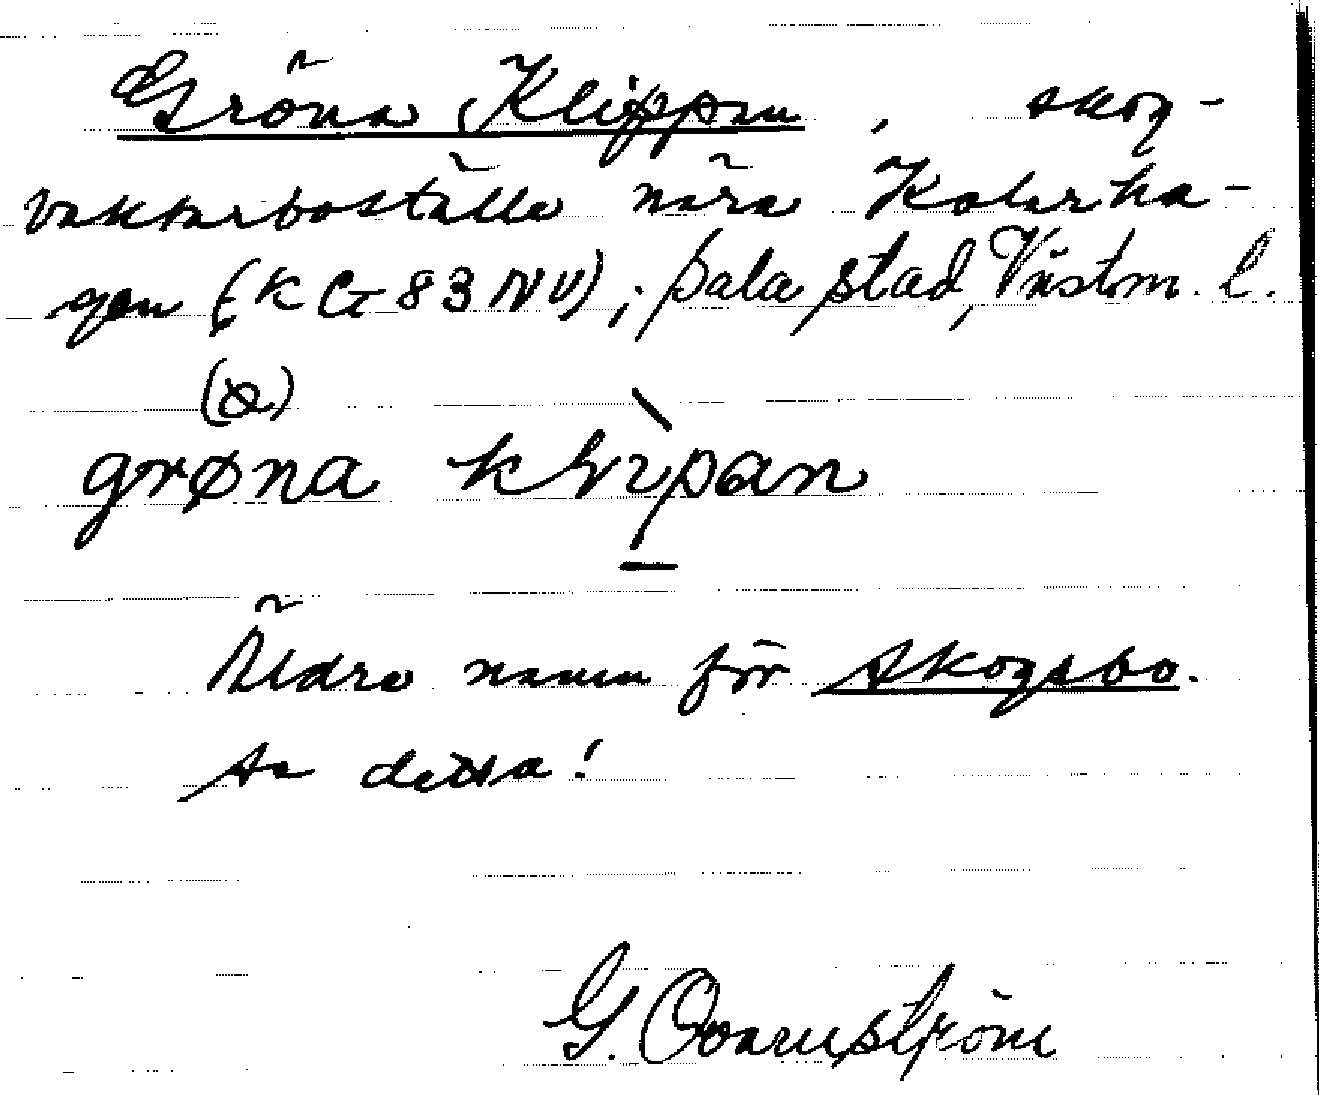 Gröna Klippan, skog-
vaktarboställe nära Kolarha-
gen (K G 83 NV), Sala stad, Västm. l.
(ə)
grøna klìpan
Äldre namn för Skogsbo.
Se detta!
G. Ovarnström